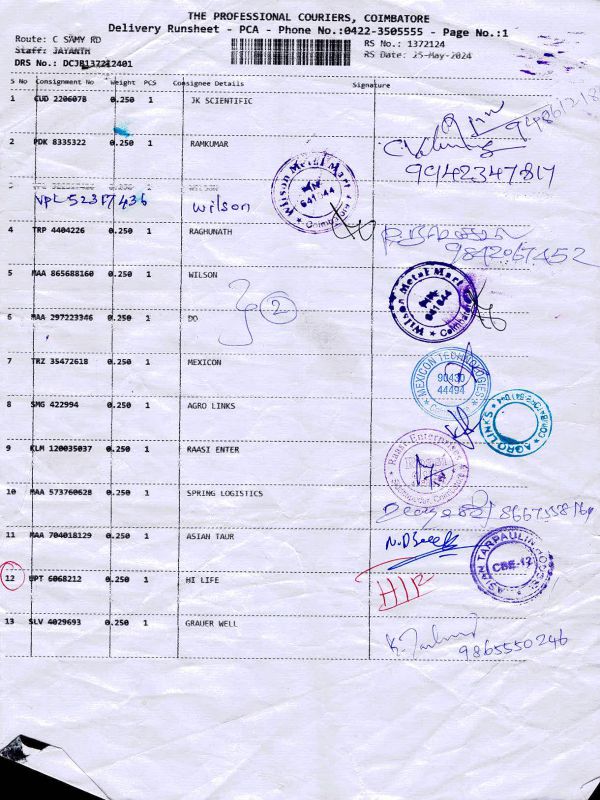 THE PROFESSIONAL COURIERS, COIMBATORE
Delivery Runsheet - PCA - Phone No.:0422-3505555 - Page No.:1
Route: C SAMY RD
Staff: JAYANTH
DRS No.: DCJB137242401
RS No.: 1372124
RS Date: 25-May-2024
S No Consignment No Weight PCS Consignee Details Signature
1 CUD 2206078 0.250 1 JK SCIENTIFIC
2 PDK 8335322 0.250 1 RAMKUMAR
9942347817
Wilson Metal Mart
641 044
Coimbatore
3 WILSON
VPL 52317436 wilson
4 TRP 4404226 0.250 1 RAGHUNATH
9842067452
5 MAA 865688160 0.250 1 WILSON
Wilson Metal Mart
641 044
Coimbatore
6 MAA 297223346 0.250 1 DO
2
7 TRZ 35472618 0.250 1 MEXICON
MEXICON TECHNOLOGIES
90430
44494
8 SMG 422994 0.250 1 AGRO LINKS
AGRO LINKS
9 KLM 120035037 0.250 1 RAASI ENTER
Raasi Enterprises
10 MAA 573760628 0.250 1 SPRING LOGISTICS
11 MAA 704018129 0.250 1 ASIAN TAUR
ASIAN TARPAULIN HOUSE
CBE-12
12 UPT 6068212 0.250 1 HI LIFE
13 SLV 4029693 0.250 1 GRAUER WELL
9865550246